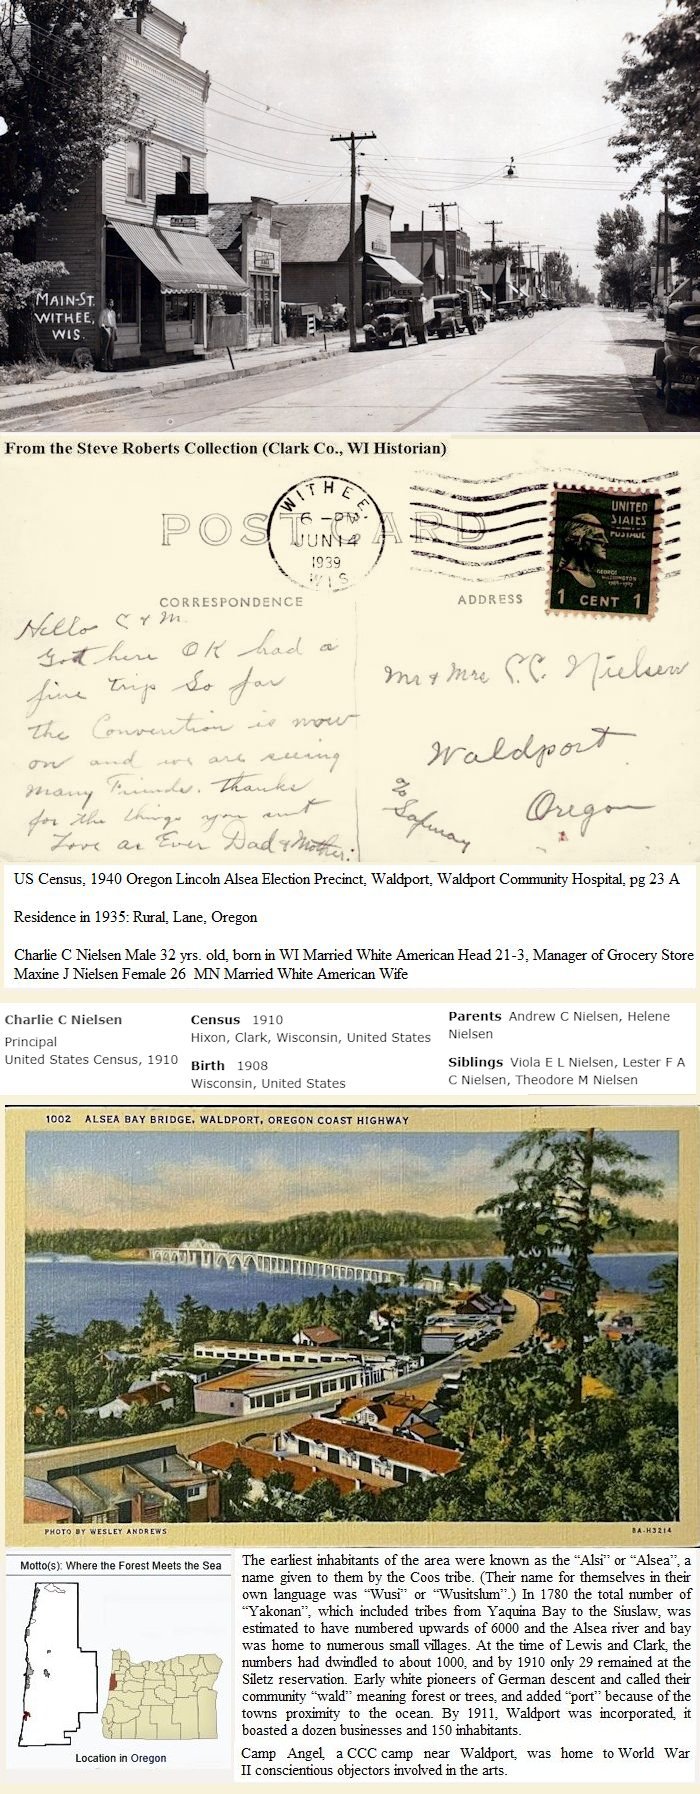 MAIN-ST.
WITHEE,
WIS.
From the Steve Roberts Collection (Clark Co., WI Historian)
WITHEE.
6 - PM
JUN 14
1939
WIS
POST CARD
UNITED
STATES
POSTAGE
GEORGE
WASHINGTON
1 CENT 1
CORRESPONDENCE
ADDRESS
Hello C & M.
Got here OK had a
fine trip So far
the Convention is now
on and we are seeing
many Friends. Thanks
for the things you sent
Love as Ever Dad & Mother.
Mr & Mrs C.C. Nielsen
Waldport
Oregon
% Safeway
US Census, 1940 Oregon Lincoln Alsea Election Precinct, Waldport, Waldport Community Hospital, pg 23 A
Residence in 1935: Rural, Lane, Oregon
Charlie C Nielsen Male 32 yrs. old, born in WI Married White American Head 21-3, Manager of Grocery Store
Maxine J Nielsen Female 26 MN Married White American Wife
Charlie C Nielsen
Principal
United States Census, 1910
Census 1910
Hixon, Clark, Wisconsin, United States
Birth 1908
Wisconsin, United States
Parents Andrew C Nielsen, Helene
Nielsen
Siblings Viola E L Nielsen, Lester F A
C Nielsen, Theodore M Nielsen
1002 ALSEA BAY BRIDGE, WALDPORT, OREGON COAST HIGHWAY
PHOTO BY WESLEY ANDREWS
8A-H3214
Motto(s): Where the Forest Meets the Sea
Location in Oregon
The earliest inhabitants of the area were known as the “Alsi” or “Alsea”, a
name given to them by the Coos tribe. (Their name for themselves in their
own language was “Wusi” or “Wusitslum”.) In 1780 the total number of
“Yakonan”, which included tribes from Yaquina Bay to the Siuslaw, was
estimated to have numbered upwards of 6000 and the Alsea river and bay
was home to numerous small villages. At the time of Lewis and Clark, the
numbers had dwindled to about 1000, and by 1910 only 29 remained at the
Siletz reservation. Early white pioneers of German descent and called their
community “wald” meaning forest or trees, and added “port” because of the
towns proximity to the ocean. By 1911, Waldport was incorporated, it
boasted a dozen businesses and 150 inhabitants.
Camp Angel, a CCC camp near Waldport, was home to World War
II conscientious objectors involved in the arts.